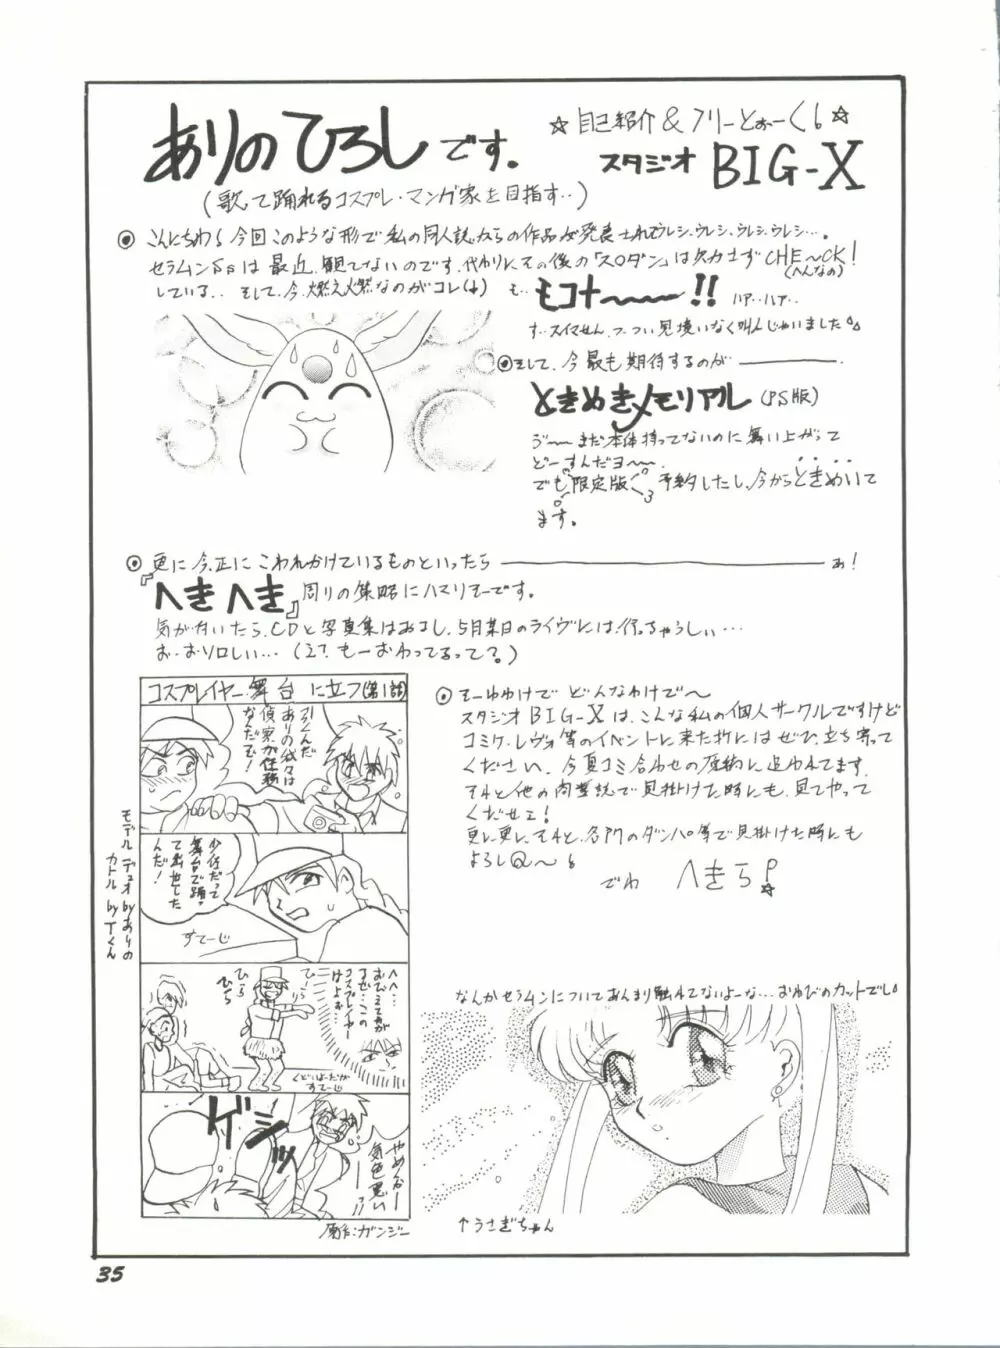 ありのひろしです。
☆自己紹介&フリーとぉーく☆
スタジオ BIG-X
(歌って踊れるコスプレ・マンガ家を目指す‥)
◎こんにちわ! 今回このような形で私の同人誌からの作品が発表されてウレシ、ウレシ、ウレシ、ウレシ…。
セラムンSsは最近、観てないのです。代わりにその後の「スロダン」は欠かさずCHE〜CK!
(へんなの)
している‥ そして、今、燃え燃えなのがコレ(↓)
も‥ モコナ〜〜〜!! ハァ‥ハァ‥
す‥スイマせん、つ‥つい見境いなく叫んじゃいました。
◎そして、今最も期待するのが
ときめきメモリアル(PS版)
う〜〜まだ本体持ってないのに舞い上がって
どーすんだヨ〜〜。
でも限定版 予約したし、今からときめいて
ます。
◎更に今、正にこわれかけているものといったら あ!
『へきへき』周りの策略にハマリモーです。
気が付いたら、CDと写真集はあるし、5月某日のライヴには行っちゃうしぃ…
お‥おソロしい…(え?もーおわってるって?)
コスプレイヤー舞台に立つ(第1話)
引くんだ
ありの我々は
偵察が任務
なんだぞ!
少佐だって
舞台で踊っ
て出世した
んだ!
すてーじ
へへ…
おびえてやが
るぜ…この
コスプレイヤー
けよぉ…
ひ〜ら
ひら
ひ〜ら
くどぱーだが
すてーじ
ゲシッ
やめんかー
気色悪いーーっ!!
モデル デュオ byありの
カトル by Tくん
原作:ガンジー
◎そーゆわけで どんなわけで〜
スタジオBIG-Xは、こんな私の個人サークルですけど
コミケ、レヴォ等のイベントに来た折にはぜひ、立ち寄って
ください、今夏コミ合わせの原稿に追われてます。
それと他の商業誌で見掛けた時にも、見てやって
くだせェ!
更に更に、それと、各門のダンパ等で見掛けた時にも
よろし@〜!
でわ へきら!
なんかセラムンについてあんまり触れてないよーな…おわびのカットでし。
↑うさぎちゃん
35